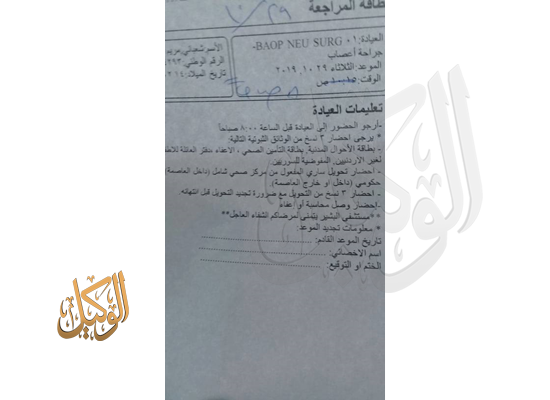 بطاقة المراجعة
١٠/٢٩
العيادة: BAOP NEU SURG ٠١-
جراحة أعصاب
الموعد: الثلاثاء ٢٩ .١٠ .٢٠١٩
الوقت: ص
الرقم الوطني:
تاريخ الميلاد:
تعليمات العيادة
-أرجو الحضور إلى العيادة قبل الساعة ٨:٠٠ صباحاً
* يرجى احضار ٢ نسخ من الوثائق الثبوتية التالية:
- بطاقة الأحوال المدنية, بطاقة التأمين الصحي ، الاعفاء ,دفتر العائلة
لغير الاردنيين, المفوضية للسوريين.
- احضار تحويل ساري المفعول من مركز صحي شامل (داخل العاصمة)
حكومي (داخل او خارج العاصمة).
- احضار ٣ نسخ من التحويل مع ضرورة تجديد التحويل قبل انتهائه
-إحضار وصل محاسبة أو إعفاء
**مستشفى البشير يتمنى لمرضاكم الشفاء العاجل**
* معلومات تجديد الموعد:
تاريخ الموعد القادم:
اسم الاخصائي:
الختم او التوقيع:
الوكيل
الوكيل